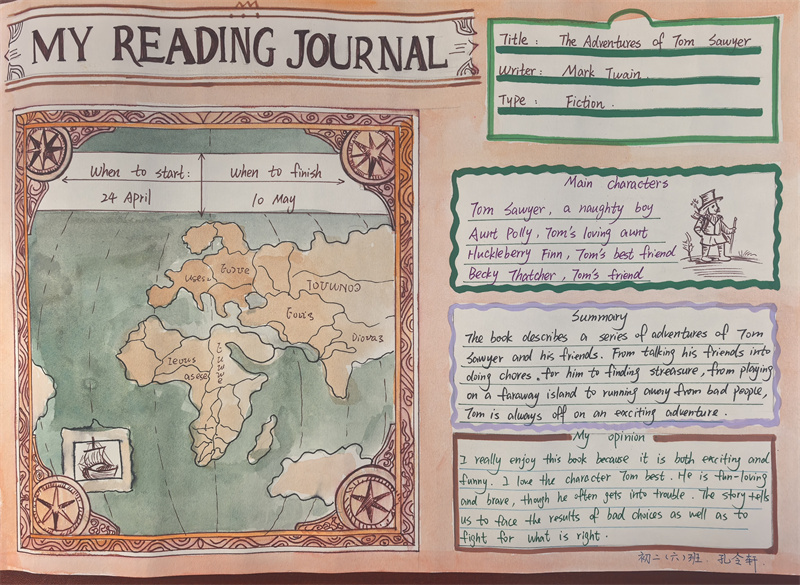 MY READING JOURNAL
Title : The Adventures of Tom Sawyer
Writer : Mark Twain .
Type : Fiction .
When to start :
24 April
When to finish
10 May
Main characters
Tom Sawyer , a naughty boy
Aunt Polly , Tom's loving aunt
Huckleberry Finn , Tom's best friend
Becky Thatcher , Tom's friend
Summary
The book describes a series of adventures of Tom
Sawyer and his friends . From talking his friends into
doing chores . for him to finding streasure , from playing
on a faraway island to running away from bad people ,
Tom is always off on an exciting adventure .
My opinion
I really enjoy this book because it is both exciting and
funny . I love the character Tom best . He is fun-loving
and brave , though he often gets into trouble . The story tells
us to face the results of bad choices as well as to
fight for what is right .
初二(六)班 . 孔令轩 .